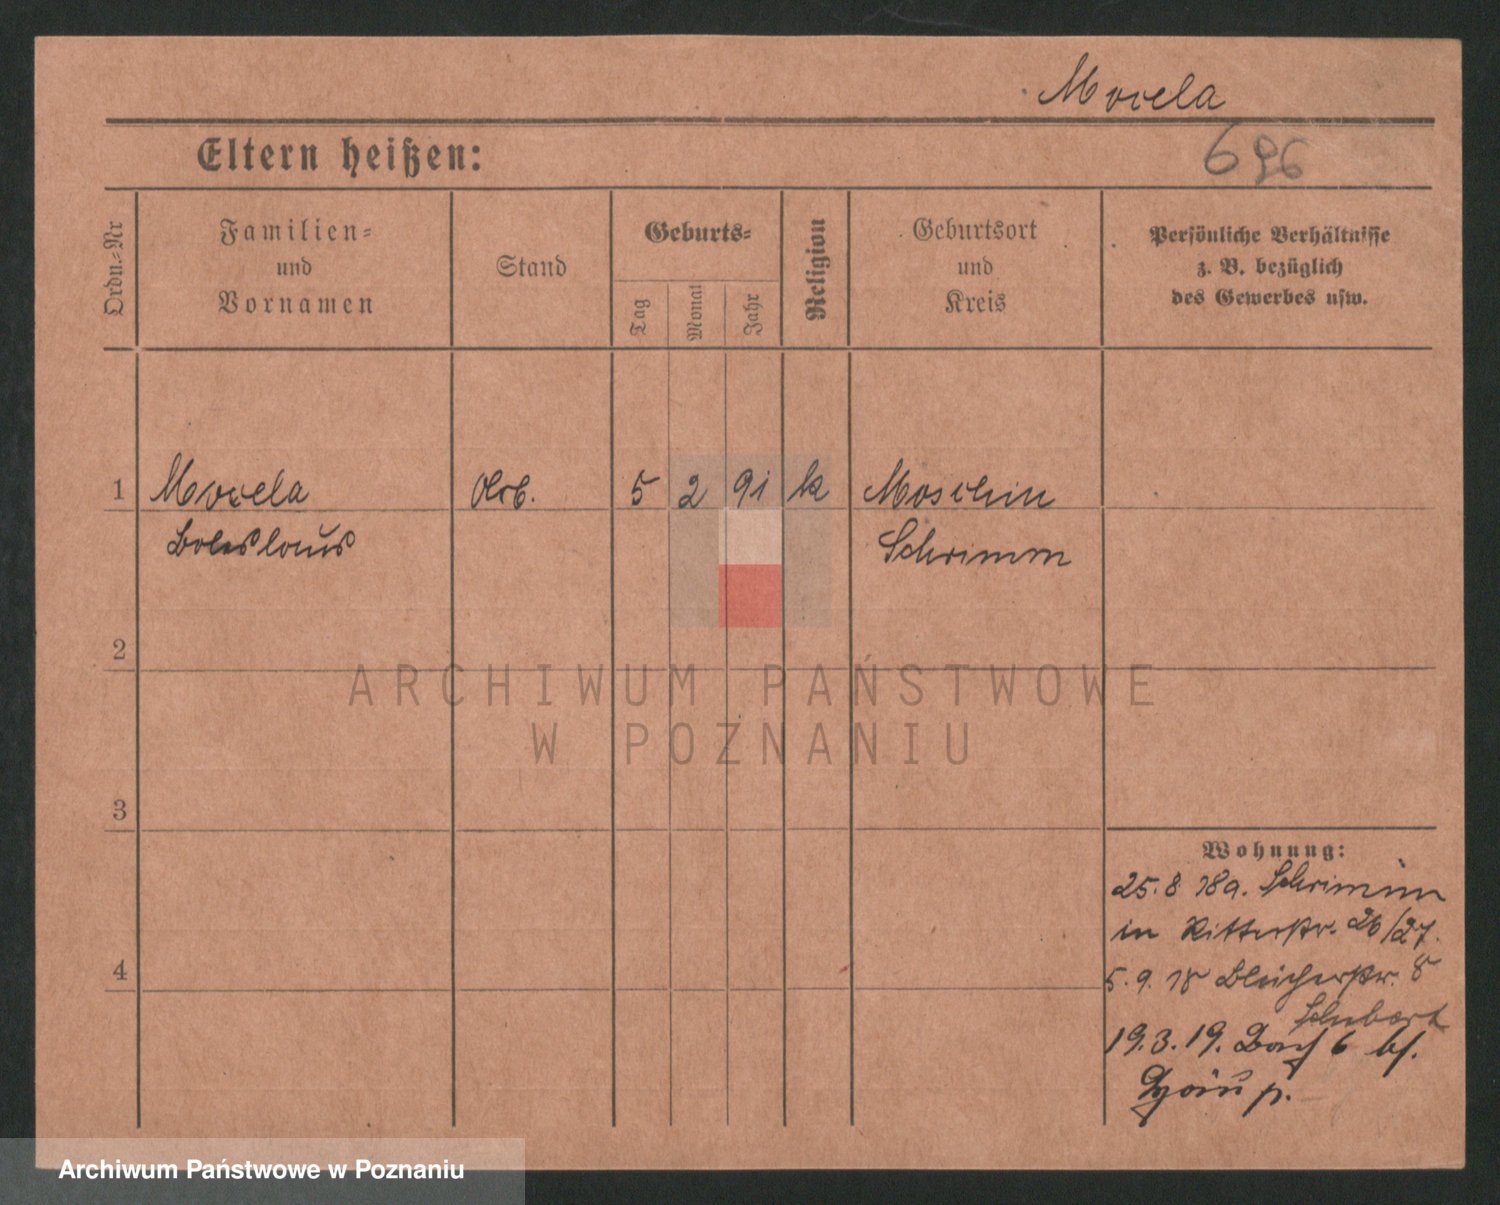 Mocela
Eltern heißen:
696
Ordn.-Nr
Familien-
und
Vornamen
Stand
Geburts-
Tag
Monat
Jahr
Religion
Geburtsort
und
Kreis
Persönliche Verhältnisse
z. B. bezüglich
des Gewerbes usw.
1 Mocela Arb. 5 2 91 k Moschin
Boleslaus Schrimm
2
ARCHIWUM PAŃSTWOWE
W POZNANIU
3
Wohnung:
25.8 18 a. Schrimm
in Ritterstr. 26/27.
4
5.9.18 Bleicherstr. 8
Schubert
19.3.19. 6 bf.
Archiwum Państwowe w Poznaniu